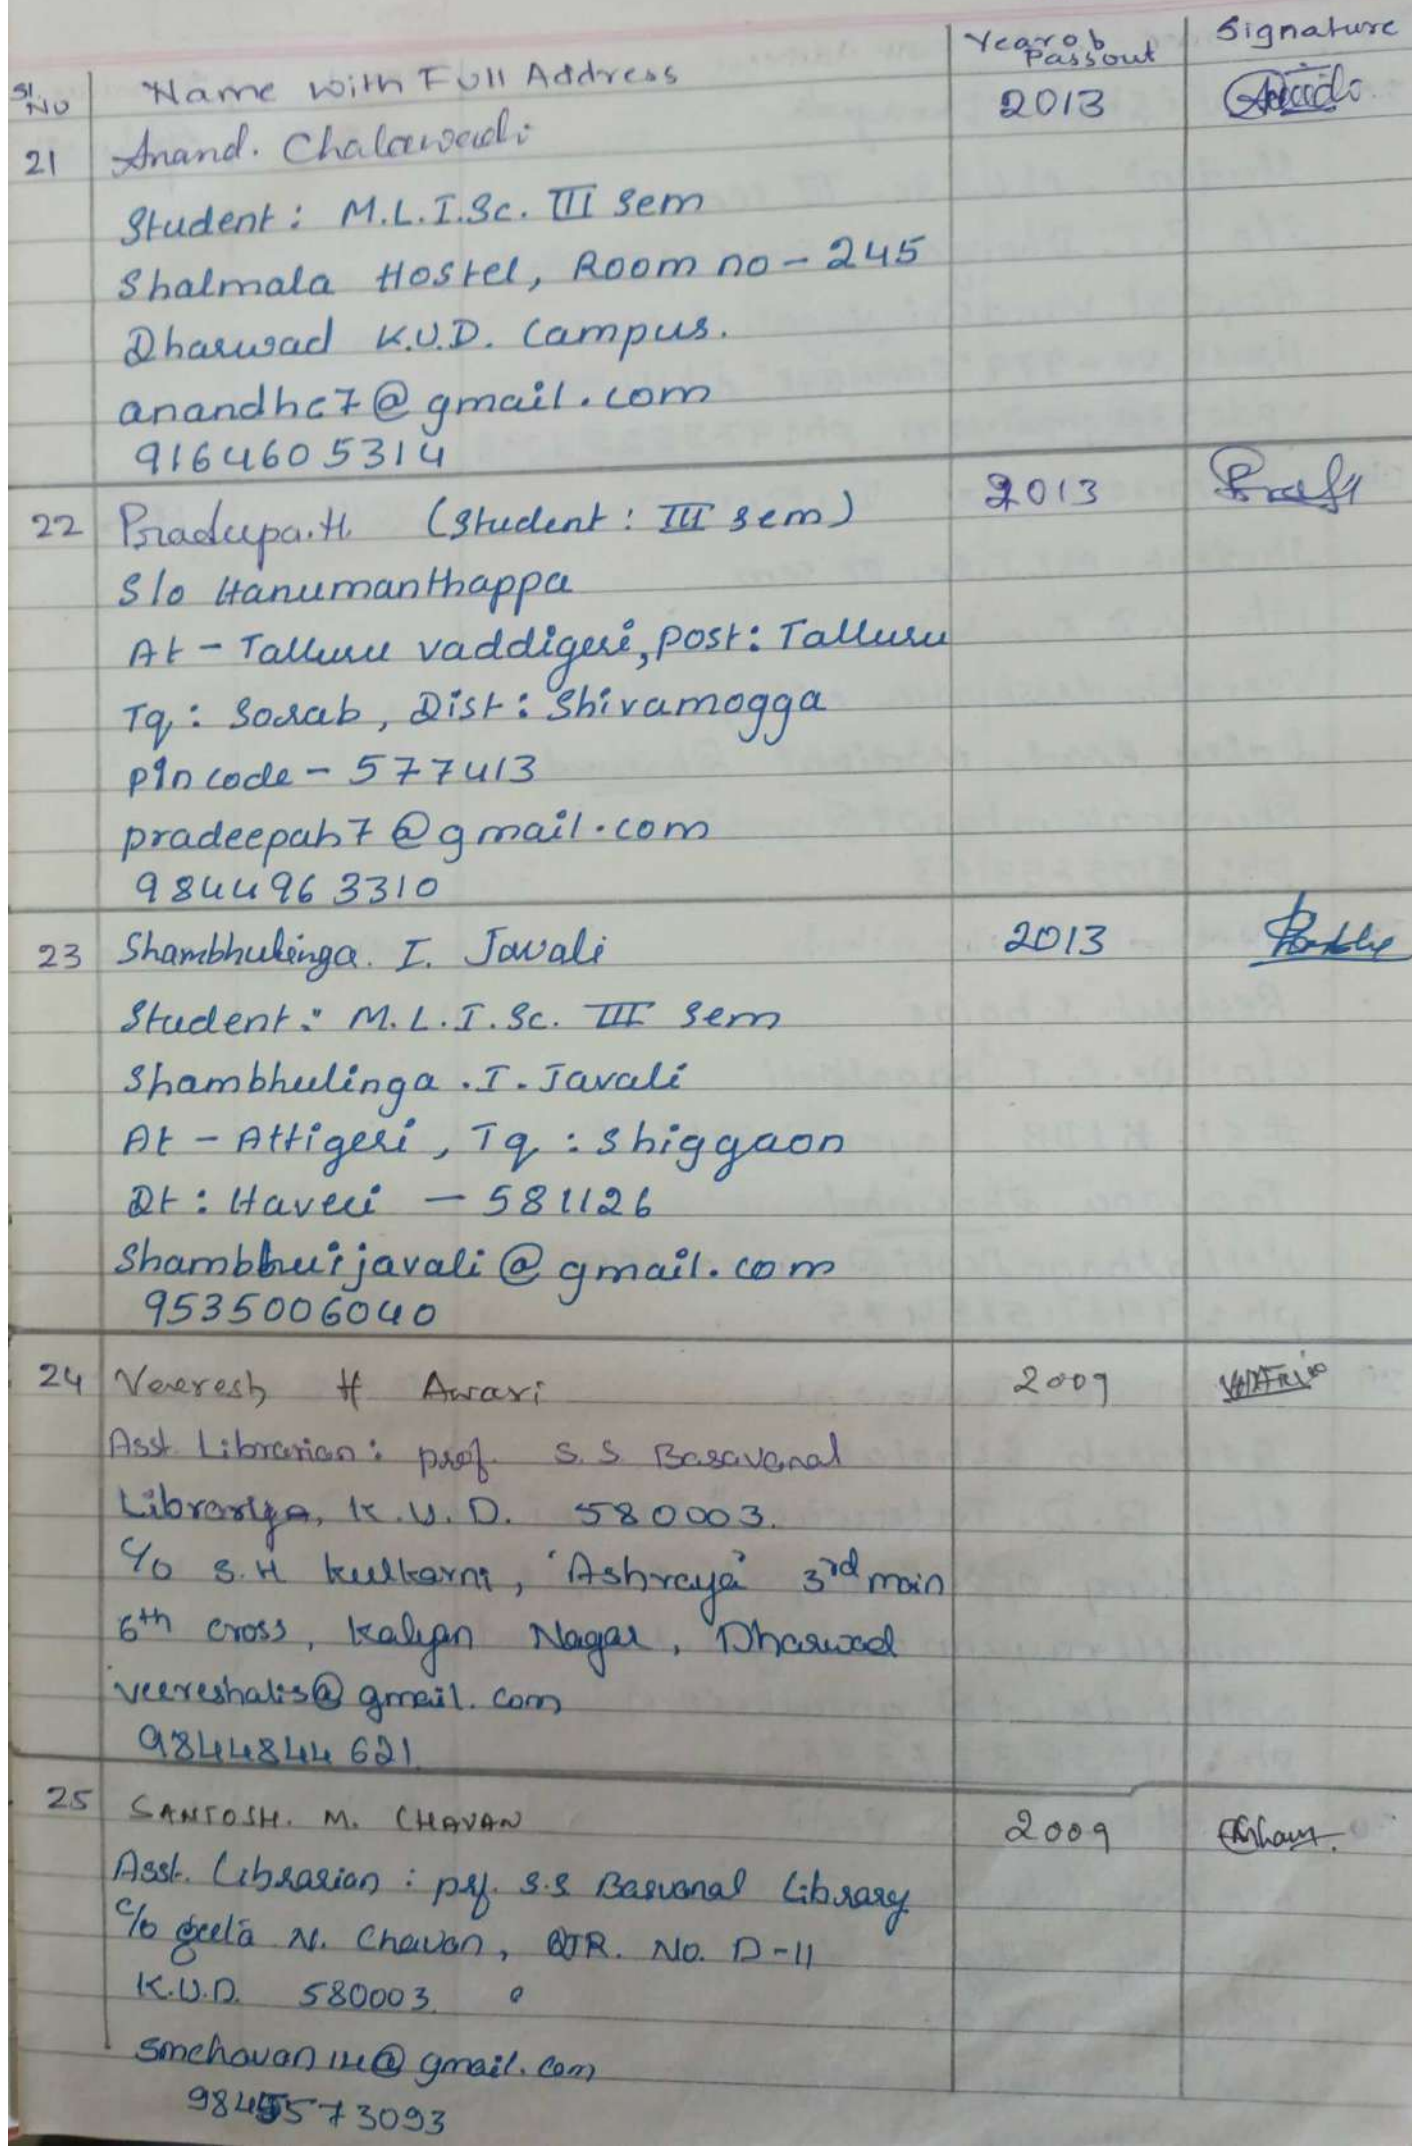 Sl. No Name with Full Address Year of Passout Signature
21 Anand. Chalawadi 2013
Student : M.L.I.Sc. III sem
Shalmala Hostel, Room no - 245
Dharwad K.U.D. Campus.
anandhc7@gmail.com
9164605314
22 Pradeepa.H. (Student : III sem) 2013
S/o Hanumanthappa
At - Talluru vaddigeri, post : Talluru
Tq : Sorab, Dist : Shivamogga
pin code - 577413
pradeepah7@gmail.com
9844963310
23 Shambhulinga. I. Javali 2013
Student : M.L.I.Sc. III sem
Shambhulinga .I. Javali
At - Attigeri, Tq : Shiggaon
Dt : Haveri - 581126
Shambhuijavali@gmail.com
9535006040
24 Veeresh H Awari 2009
Asst. Librarian : prof. S.S Basavanal
K.U.D. 580003.
C/o S.H kulkarni, 'Ashraya' 3rd main
6th cross, Kalyan Nagar, Dharwad
veereshalis@gmail.com
9844844621
25 SANTOSH. M. CHAVAN 2009
Asst. Librarian : prf. S.S Basvanal Library
C/o geeta N. Chavan, QTR. No. D-11
K.U.D. 580003.
@gmail.com
9845573093